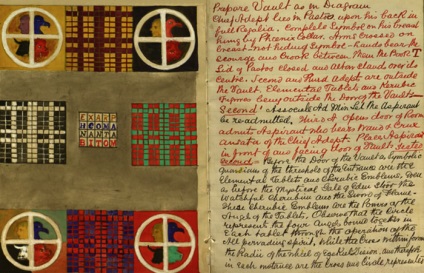 EXARP
HCOMA
NANTA
BITOM
Prepare Vault as in Diagram
Chief Adept lies in Pastos upon his back in
full Regalia. Complete Symbol on his breast
hung by Collar. Arms crosses on
breast not hiding Symbol - hands bear the
Scourge and Crook between them the Book T
Lid of Pastos closed and Altar stands over its
centre. Second and Third Adepts are outside
the Vault. Elemental Tablets and Kerubic
being outside the Door of the Vault
Second: Associate Ad Min Let the Aspirant
be readmitted. Opens door of Room
admits Aspirant who bears Wand & Crux
Ansata of the Chief Adept. Places Aspirant
in front of and facing Door of Vault.
Second - Before the Door of the Vault as Symbolic
Guardians of the threshold of the Entrance are the
Elemental Tablets and Cherubic Emblems, Even
as before the Mystical Gate of Eden stood the
Watchful Cherubim and the Sword of Flame.
These Cherubic Emblems are the Powers of the
Angels of the Tablets. Observe that the Circle
represents the Four Angles bound together in
Each Tablet through the operation of the
All pervading Spirit, while the Cross within forms
the Radii of the wheel of Ezekiel's Vision, and therefore
in each instance are the Cross and Circle represented